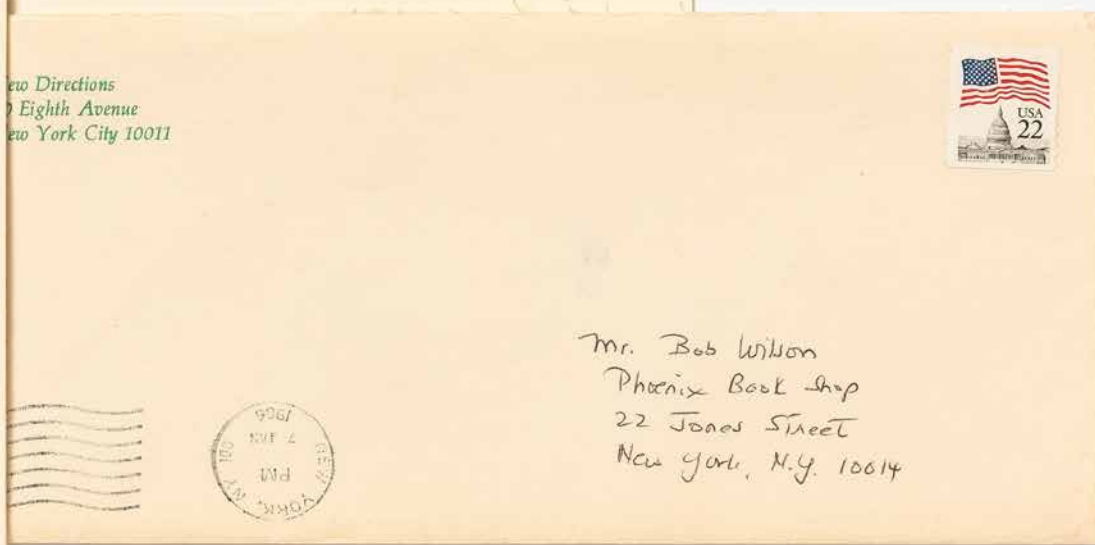 ew Directions
Eighth Avenue
ew York City 10011
USA
22
Mr. Bob Wilson
Phoenix Book Shop
22 Jones Street
New York, N.Y. 10014
NEW YORK, NY 100
PM
7 JAN
1986